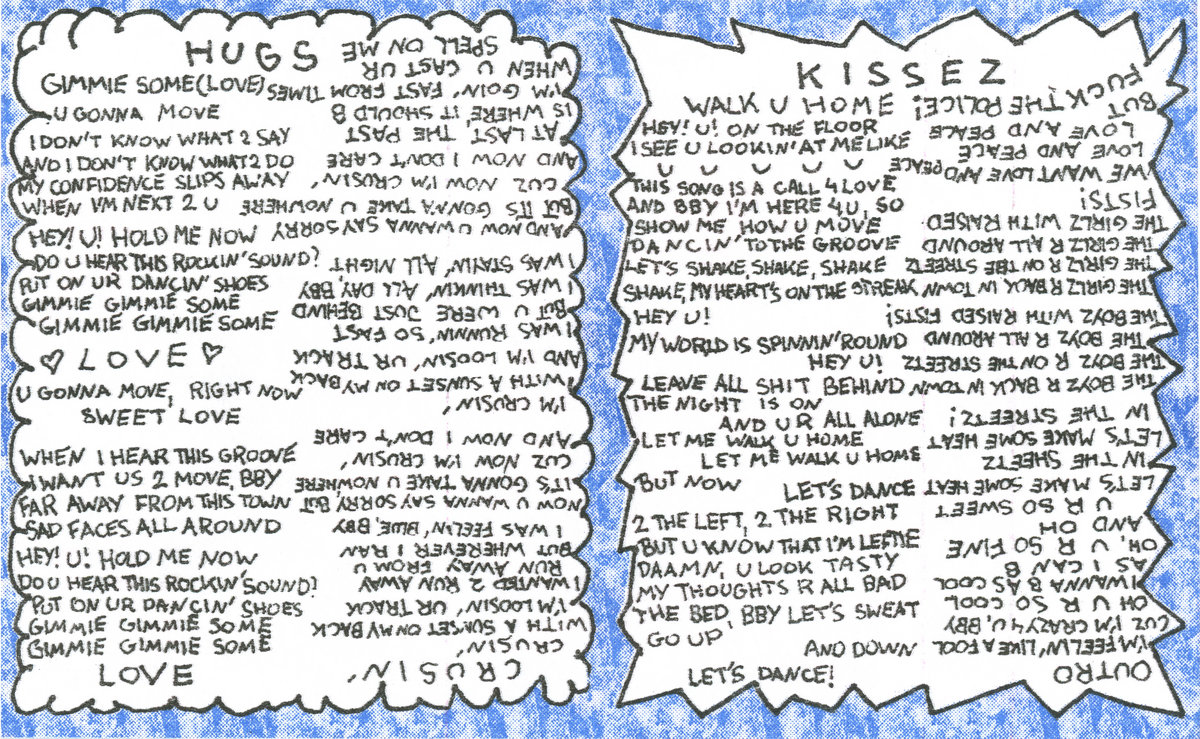 HUGS
GIMMIE SOME(LOVE)
U GONNA MOVE
I DON'T KNOW WHAT 2 SAY
AND I DON'T KNOW WHAT 2 DO
MY CONFIDENCE SLIPS AWAY
WHEN I'M NEXT 2 U
HEY! U! HOLD ME NOW
DO U HEAR THIS ROCKIN' SOUND?
PUT ON UR DANCIN' SHOES
GIMMIE GIMMIE SOME
GIMMIE GIMMIE SOME
♡ LOVE ♡
U GONNA MOVE, RIGHT NOW
SWEET LOVE
WHEN I HEAR THIS GROOVE
I WANT US 2 MOVE, BBY
FAR AWAY FROM THIS TOWN
SAD FACES ALL AROUND
HEY! U! HOLD ME NOW
DO U HEAR THIS ROCKIN' SOUND?
PUT ON UR DANCIN' SHOES
GIMMIE GIMMIE SOME
GIMMIE GIMMIE SOME
LOVE
CRUSIN'
CRUSIN',
WITH A SUNSET ON MY BACK
I'M LOOSIN' UR TRACK
I WANTED 2 RUN AWAY
RUN AWAY FROM U
BUT WHEREVER I RAN
I WAS FEELIN' BLUE, BBY
NOW U WANNA SAY SORRY, BUT
IT'S GONNA TAKE U NOWHERE
CUZ NOW I'M CRUSIN',
AND NOW I DON'T CARE
I'M CRUSIN'
WITH A SUNSET ON MY BACK
AND I'M LOOSIN' UR TRACK
I WAS RUNNIN' SO FAST
BUT U WERE JUST BEHIND
I WAS THINKIN' ALL DAY, BBY
I WAS STAYIN' ALL NIGHT
AND NOW U WANNA SAY SORRY
BUT ITS GONNA TAKE U NOWHERE
CUZ NOW I'M CRUSIN',
AND NOW I DON'T CARE
AT LAST, THE PAST
IS WHERE IT SHOULD B
I'M GOIN' FAST FROM TIMES
WHEN U CAST UR
SPELL ON ME
KISSEZ
WALK U HOME
HEY! U! ON THE FLOOR
I SEE U LOOKIN' AT ME LIKE
U U U U
THIS SONG IS A CALL 4 LOVE
AND BBY I'M HERE 4U, SO
SHOW ME HOW U MOVE
DANCIN' TO THE GROOVE
LET'S SHAKE, SHAKE, SHAKE
SHAKE, MY HEART'S ON THE STREAK
HEY U!
MY WORLD IS SPINNIN' ROUND
HEY U!
LEAVE ALL SHIT BEHIND
THE NIGHT IS ON
AND U R ALL ALONE
LET ME WALK U HOME
LET ME WALK U HOME
BUT NOW LET'S DANCE
2 THE LEFT, 2 THE RIGHT
BUT U KNOW THAT I'M LEFTIE
DAAMN, U LOOK TASTY
MY THOUGHTS R ALL BAD
THE BED, BBY LET'S SWEAT
GO UP, AND DOWN
LET'S DANCE!
OUTRO
I'M FEELIN' LIKE A FOOL
CUZ I'M CRAZY 4 U, BBY
OH U R SO COOL
I WANNA B AS COOL
AS I CAN B
OH, U R SO FINE
AND OH
U R SO SWEET
LET'S MAKE SOME HEAT
IN THE SHEETZ
LET'S MAKE SOME HEAT
IN THE STREETZ!
THE BOYZ R BACK IN TOWN
THE BOYZ R ON THE STREETZ
THE BOYZ R ALL AROUND
THE BOYZ WITH RAISED FISTS!
THE GIRLZ R BACK IN TOWN
THE GIRLZ R ON THE STREETZ
THE GIRLZ R ALL AROUND
THE GIRLZ WITH RAISED
FISTS!
WE WANT LOVE AND PEACE
LOVE AND PEACE
LOVE AND PEACE
BUT
FUCK THE POLICE!